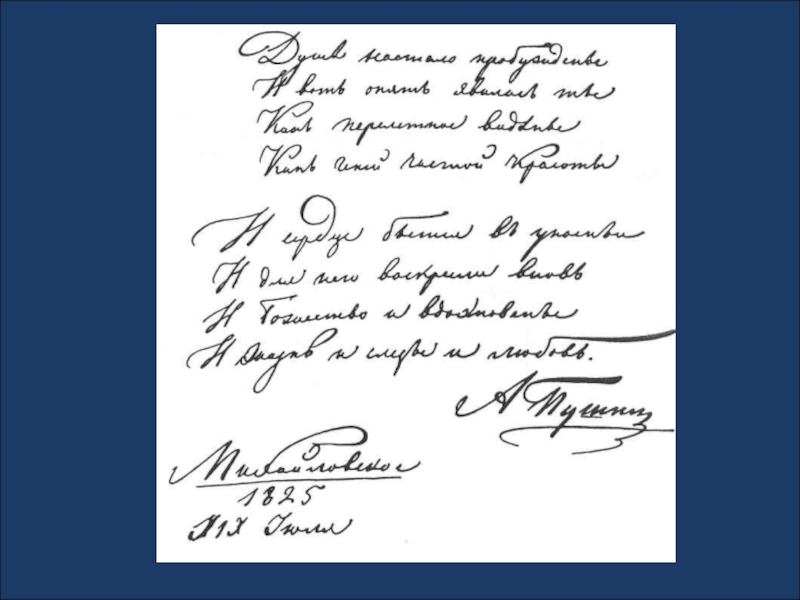 Душѣ настало пробужденье
И вотъ опять явилась ты
Какъ мимолетное видѣнье
Какъ геній чистой красоты
И сердце бьется въ упоеньи
И для него воскресли вновь
И божество и вдохновенье
И жизнь и слезы и любовь.
А Пушкин
Михайловское
1825
XIX Іюля